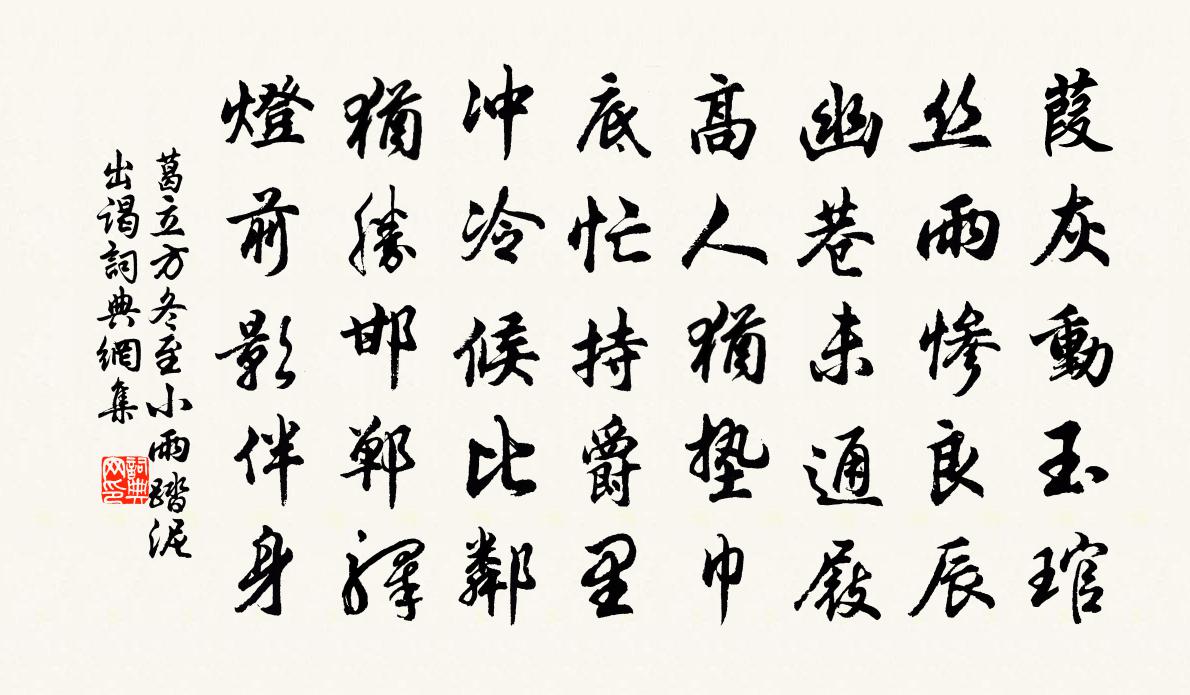 葭灰動玉琯
丝雨慘良辰
幽巷未通屐
高人猶墊巾
底忙持爵里
冲冷候比鄰
猶勝邯鄲驛
燈前影伴身
葛立方冬至小雨踏泥
出謁詞典網集
詞典
网印